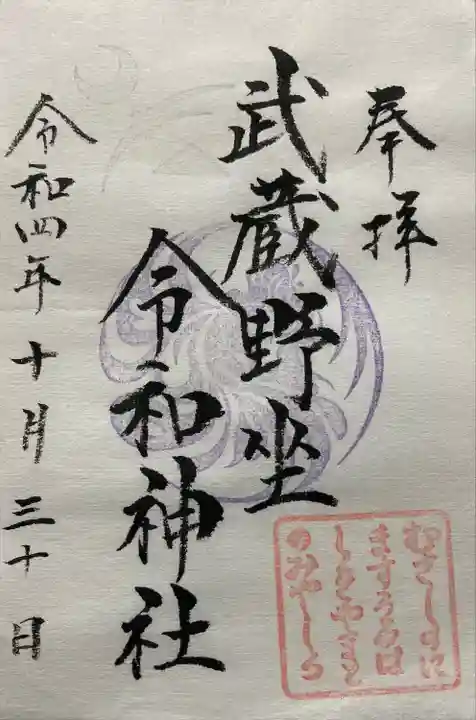 奉拝
武蔵野坐
令和神社
令和四年十月三十日
むさしのに
ますうるわ
しきやまと
のみやしろ